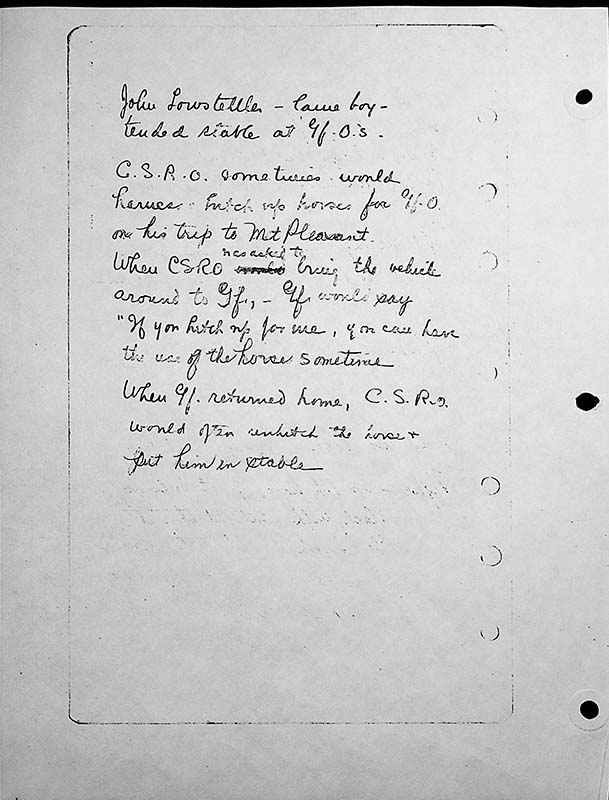 John Lowstetter - lame boy -
tended stable at Gf. O's.
C.S.R.O. sometimes would
harness - hitch up horses for Gf. O.
on his trip to Mt Pleasant.
was asked to
When CSRO bring the vehicle
around to Gf., - Gf. would say
"If you hitch up for me, you can have
the use of the horse sometime
When Gf. returned home, C.S.R.O.
would often unhitch the horse +
put him in stable